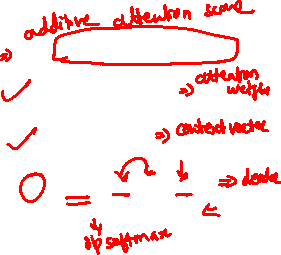 additive attention score
⇒ attention
weights
⇒ context vector
⇒ decoder
o/p softmax